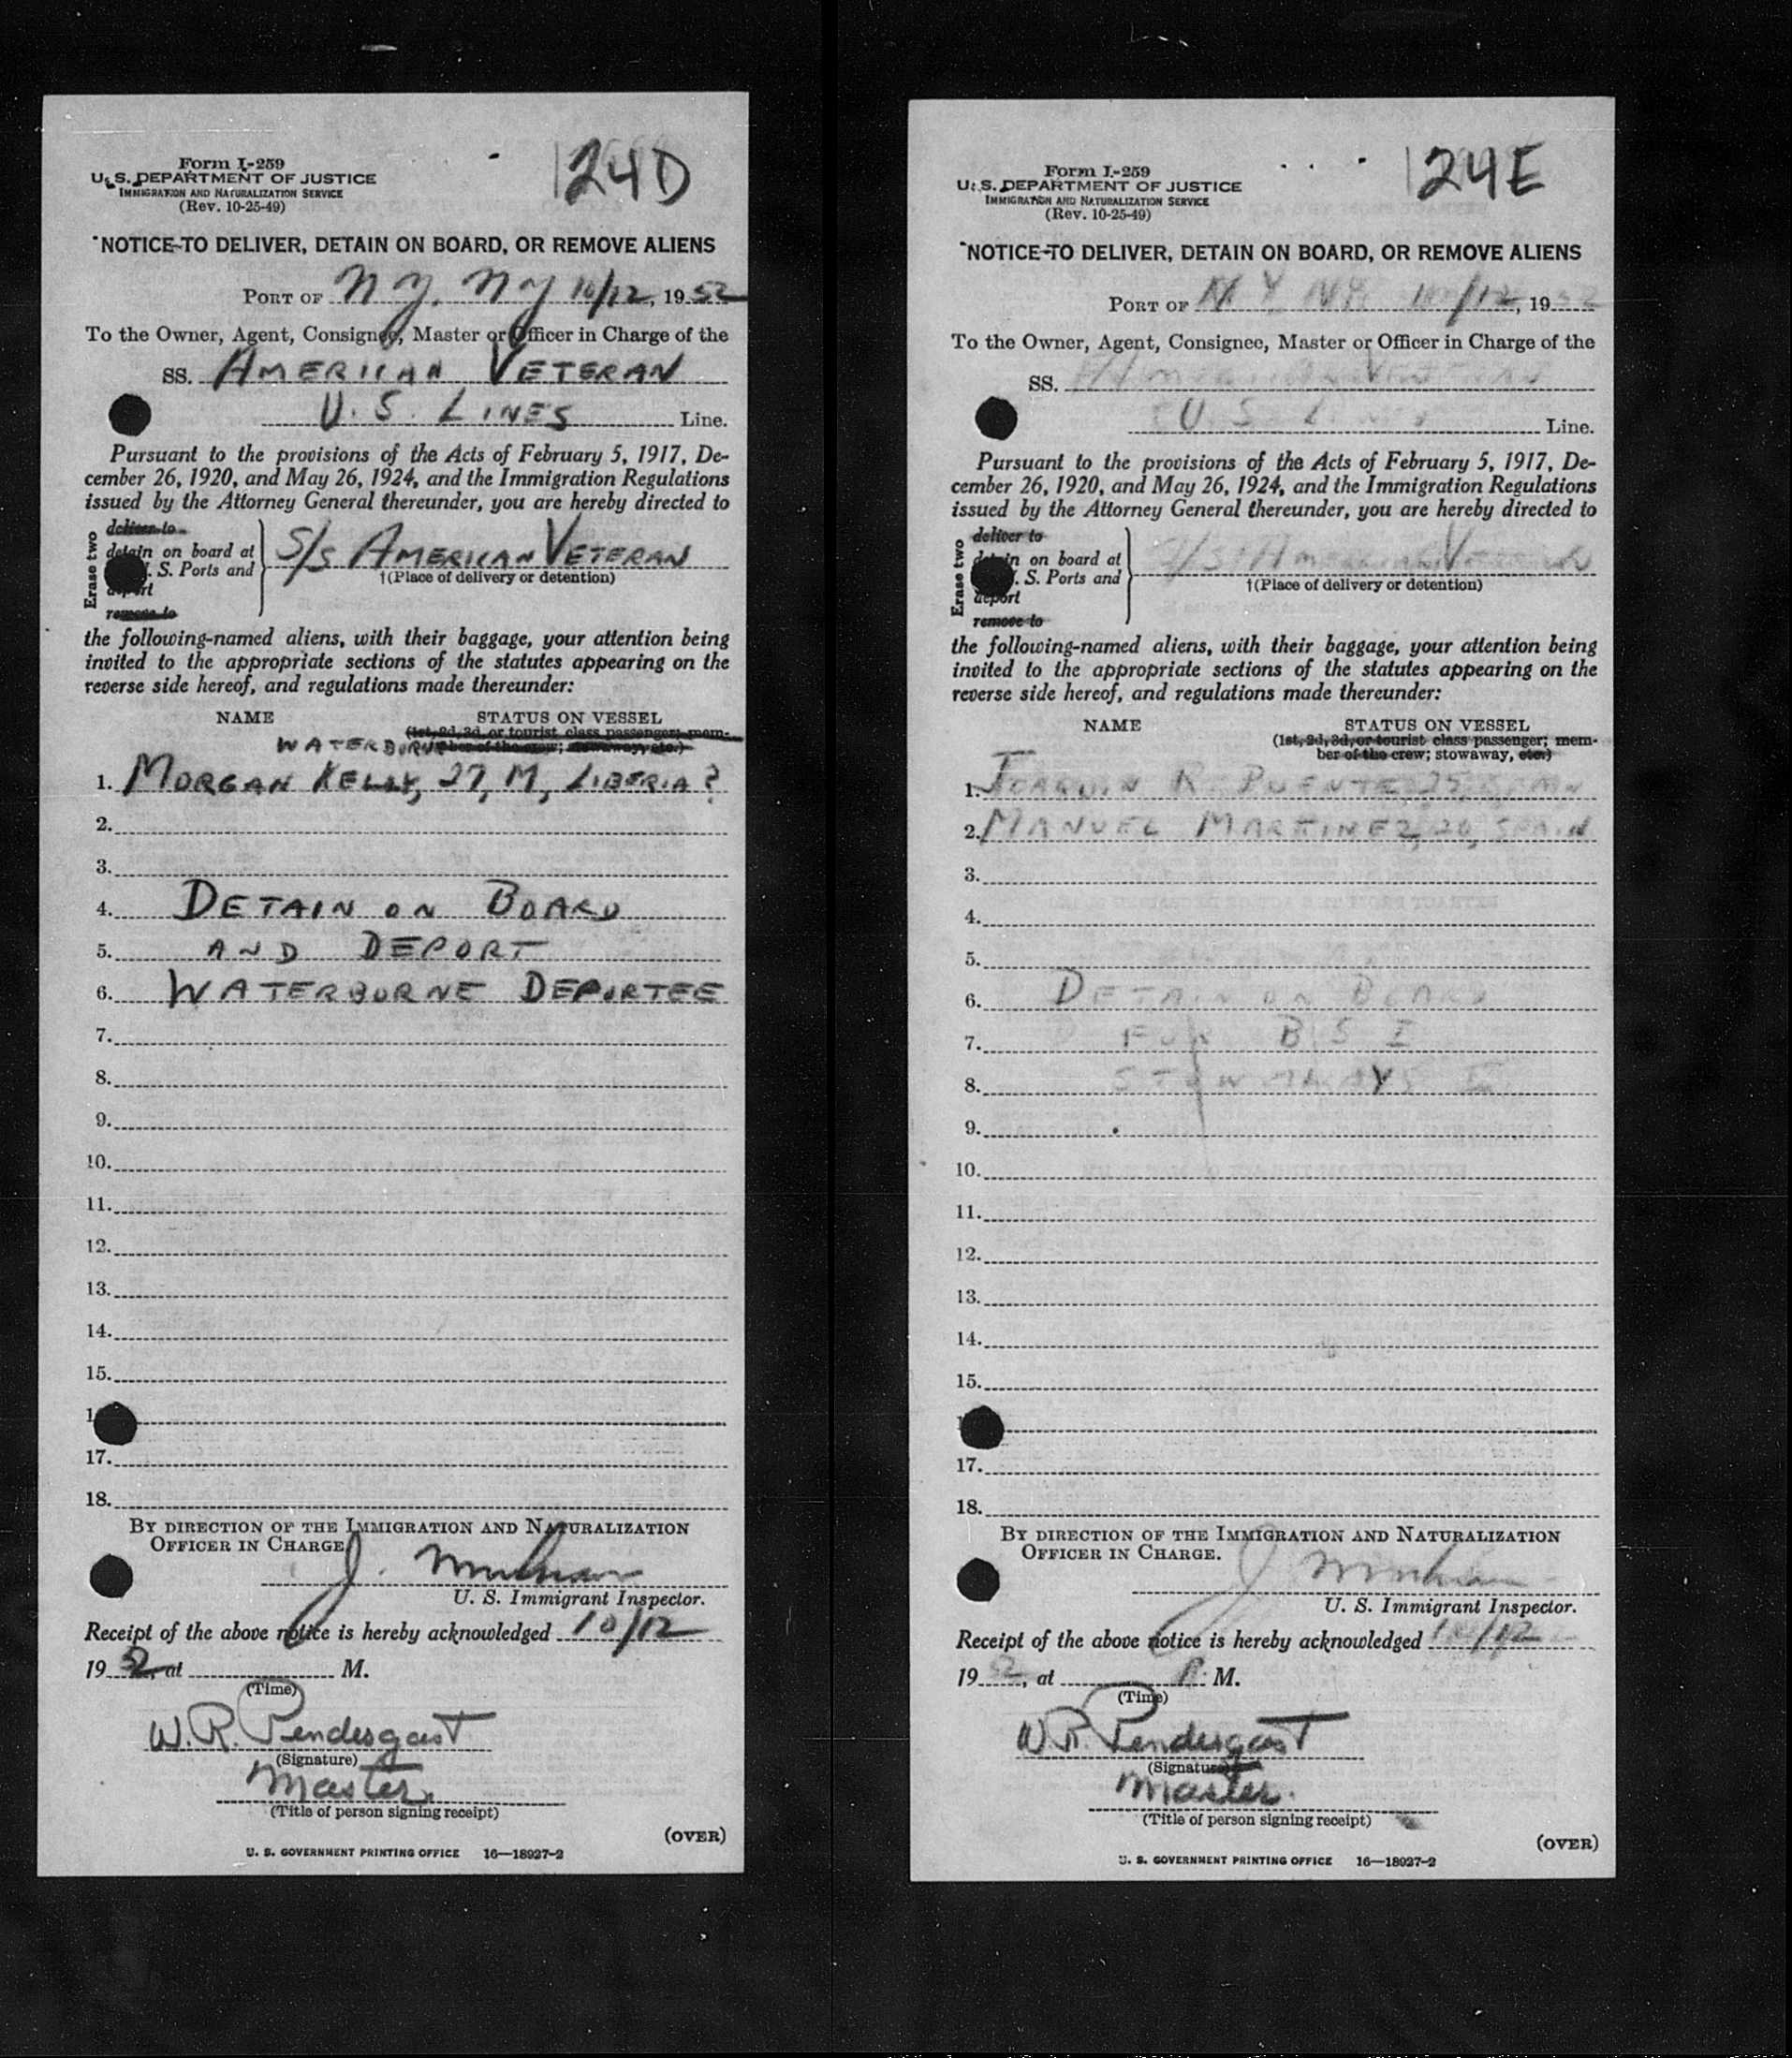 124D
Form I-259
U. S. DEPARTMENT OF JUSTICE
IMMIGRATION AND NATURALIZATION SERVICE
(Rev. 10-25-49)
NOTICE TO DELIVER, DETAIN ON BOARD, OR REMOVE ALIENS
PORT OF N Y, N Y 10/12, 1952
To the Owner, Agent, Consignee, Master or Officer in Charge of the
SS. AMERICAN VETERAN
U. S. LINES Line.
Pursuant to the provisions of the Acts of February 5, 1917, De-
cember 26, 1920, and May 26, 1924, and the Immigration Regulations
issued by the Attorney General thereunder, you are hereby directed to
Erase two
deliver to
detain on board at
S. Ports and
deport
remove to
S/S AMERICAN VETERAN
†(Place of delivery or detention)
the following-named aliens, with their baggage, your attention being
invited to the appropriate sections of the statutes appearing on the
reverse side hereof, and regulations made thereunder:
NAME STATUS ON VESSEL
(1st, 2d, 3d, or tourist class passenger; mem-
WATERBORNE ber of the crew; stowaway, etc.)
1. MORGAN KELLY, 27, M, LIBERIA ?
2.
3.
4. DETAIN ON BOARD
5. AND DEPORT
6. WATERBORNE DEPORTEE
7.
8.
9.
10.
11.
12.
13.
14.
15.
1
17.
18.
BY DIRECTION OF THE IMMIGRATION AND NATURALIZATION
OFFICER IN CHARGE.
J.
U. S. Immigrant Inspector.
Receipt of the above notice is hereby acknowledged 10/12
1952, at M.
(Time)
W. R. Pendergast
(Signature)
Master.
(Title of person signing receipt)
(OVER)
U. S. GOVERNMENT PRINTING OFFICE 16—18927-2
124E
Form I-259
U. S. DEPARTMENT OF JUSTICE
IMMIGRATION AND NATURALIZATION SERVICE
(Rev. 10-25-49)
NOTICE TO DELIVER, DETAIN ON BOARD, OR REMOVE ALIENS
PORT OF N Y, N Y. 10/12, 1952
To the Owner, Agent, Consignee, Master or Officer in Charge of the
SS. American Veteran
U. S. L Line.
Pursuant to the provisions of the Acts of February 5, 1917, De-
cember 26, 1920, and May 26, 1924, and the Immigration Regulations
issued by the Attorney General thereunder, you are hereby directed to
Erase two
deliver to
detain on board at
S. Ports and
deport
remove to
S/S American Veteran
†(Place of delivery or detention)
the following-named aliens, with their baggage, your attention being
invited to the appropriate sections of the statutes appearing on the
reverse side hereof, and regulations made thereunder:
NAME STATUS ON VESSEL
(1st, 2d, 3d, or tourist class passenger; mem-
ber of the crew; stowaway, etc.)
1. JOAQUIN R. PUENTE, 25, SPAIN
2. MANUEL MARTINEZ, 20, SPAIN
3.
4.
5.
6. DETAIN ON BOARD
7. FOR B S I
8. STOWAWAYS
9.
10.
11.
12.
13.
14.
15.
17.
18.
BY DIRECTION OF THE IMMIGRATION AND NATURALIZATION
OFFICER IN CHARGE.
J.
U. S. Immigrant Inspector.
Receipt of the above notice is hereby acknowledged 10/12
1952, at P. M.
(Time)
W. R. Pendergast
(Signature)
Master.
(Title of person signing receipt)
(OVER)
U. S. GOVERNMENT PRINTING OFFICE 16—18927-2